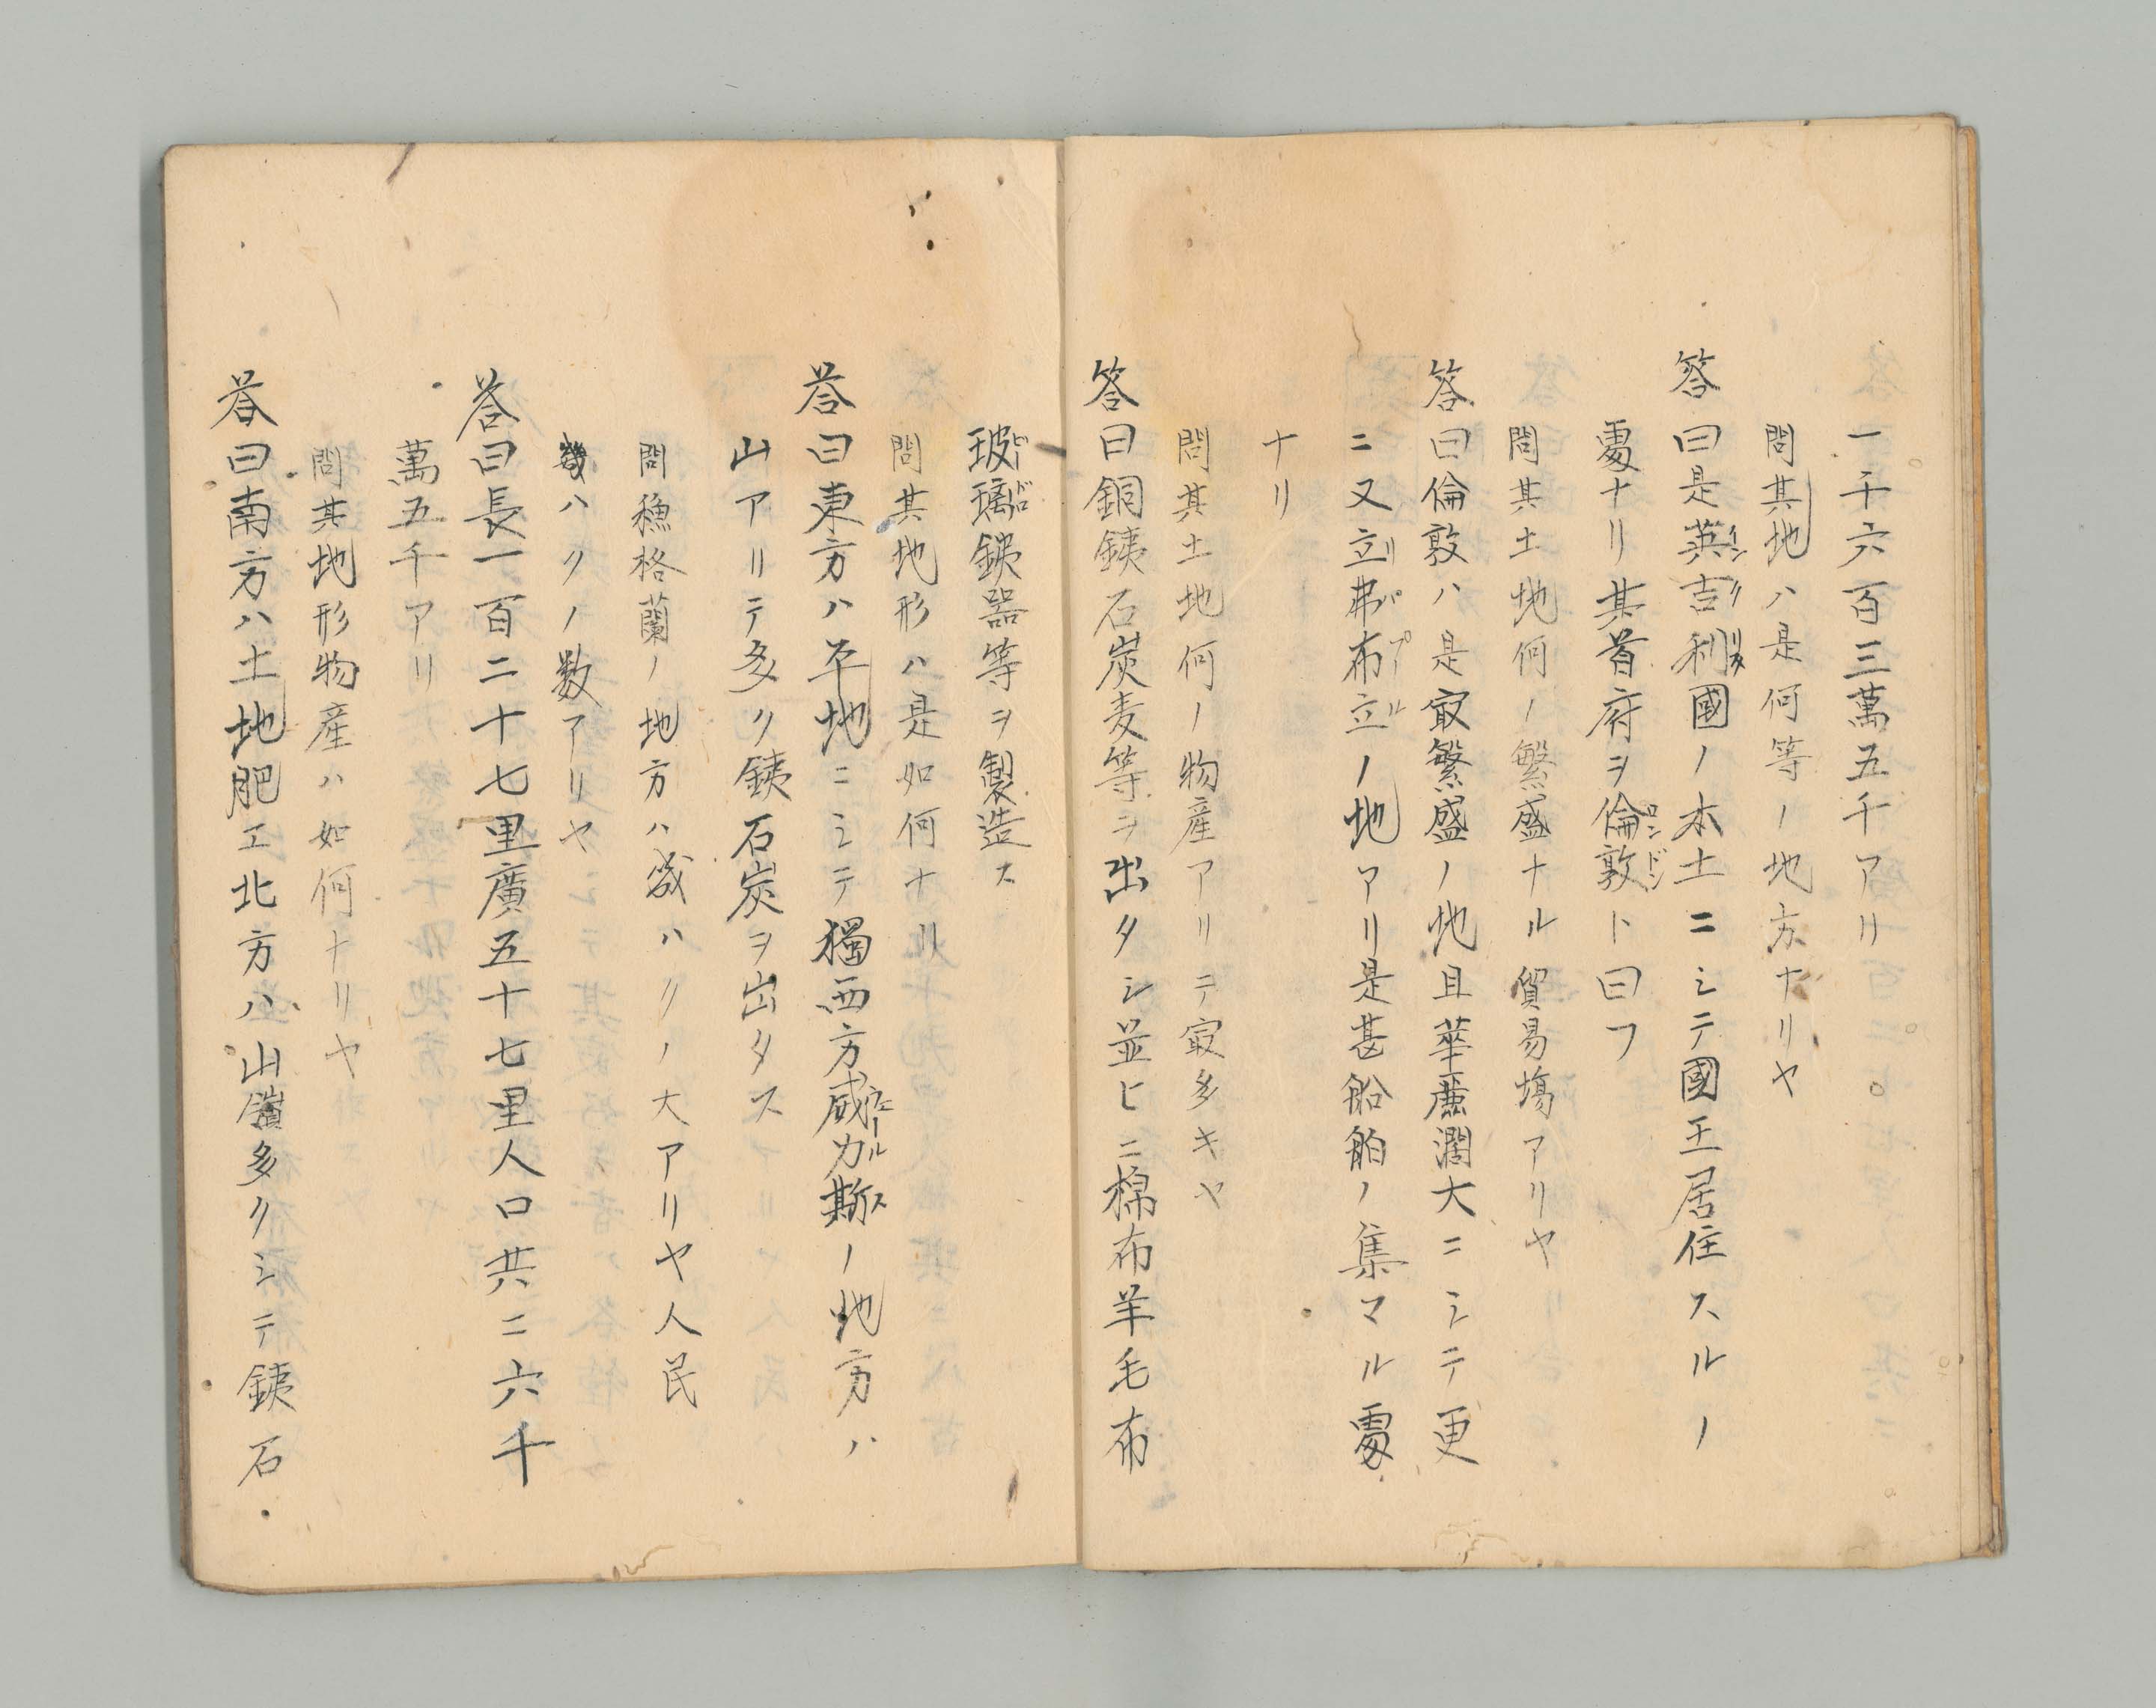 一千六百三萬五千アリ
問其地ハ是何等ノ地方ナリヤ
答曰是英吉利國ノ本土ニシテ國王居住スルノ
イギリス
處ナリ其首府ヲ倫敦ト曰フ
ロンドン
問其土地何ノ繁盛ナル貿易塲アリヤ
答曰倫敦ハ是㝡繁盛ノ地且華麗濶大ニシテ更
ニ又立弗布立ノ地アリ是甚船舶ノ集マル處
リパプール
ナリ
問其土地何ノ物産アリテ㝡多キヤ
答曰銅銕石炭麦等ヲ出タシ並ヒニ棉布羊毛布
玻璃銕器等ヲ製造ス
ビードロ
問其地形ハ是如何ナリ
答曰東方ハ平地ニシテ獨西方威力斯ノ地方ハ
ウエールス
山アリテ多ク銕石炭ヲ出タス
問穪格蘭ノ地方ハ幾ハクノ大アリヤ人民
幾ハクノ数アリヤ
答曰長一百二十七里廣五十七里人口共二六千
萬五千アリ
問其地形物産ハ如何ナリヤ
答曰南方ハ土地肥エ北方ハ山嶺多クシテ銕石